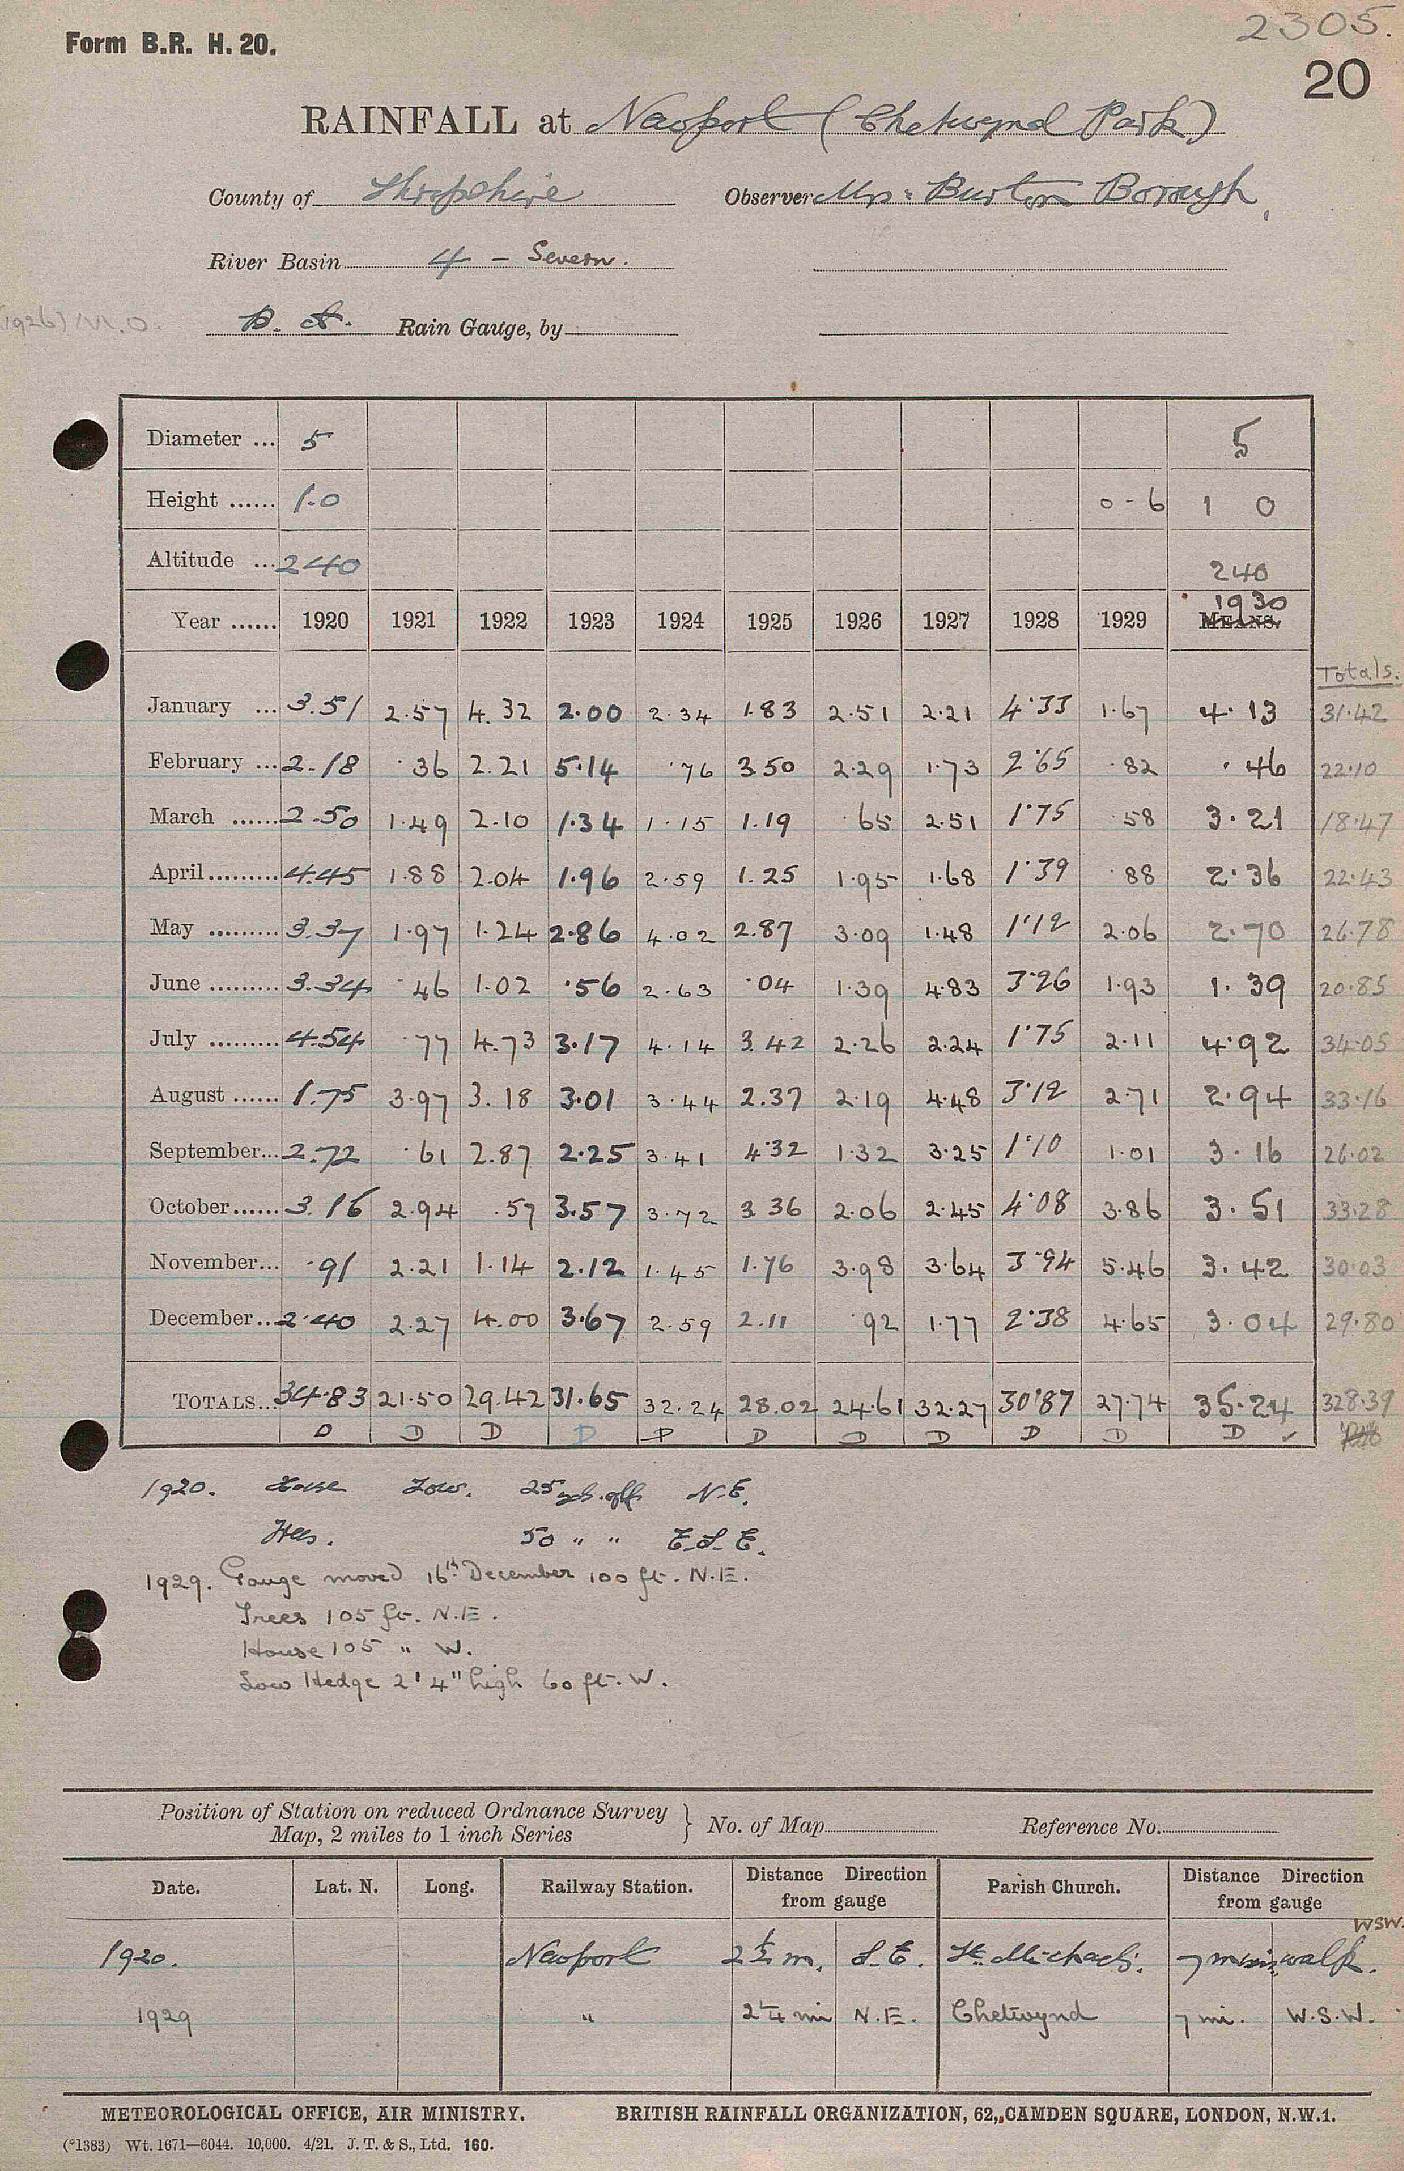 2305.
Form B.R. H. 20.
20
RAINFALL at Newport (Chetwynd Park)
County of Shropshire Observer Mrs: Burton Borough,
River Basin 4 - Severn.
(1926) M.O. Rain Gauge, by
Diameter ... 5 5
Height ...... 1.0 0-6 1 0
Altitude ... 240 240
Year ...... 1920 1921 1922 1923 1924 1925 1926 1927 1928 1929 1930 MEANS.
Totals.
January ... 3.51 2.57 4.32 2.00 2.34 1.83 2.51 2.21 4.33 1.67 4.13 31.42
February ... 2.18 .36 2.21 5.14 .76 3.50 2.29 1.73 2.65 .82 .46 22.10
March ...... 2.50 1.49 2.10 1.34 1.15 1.19 .65 2.51 1.75 .58 3.21 18.47
April ......... 4.45 1.88 2.04 1.96 2.59 1.25 1.95 1.68 1.39 .88 2.36 22.43
May ......... 3.37 1.97 1.24 2.86 4.02 2.87 3.09 1.48 1.12 2.06 2.70 26.78
June ......... 3.34 .46 1.02 .56 2.63 .04 1.39 4.83 3.26 1.93 1.39 20.85
July ......... 4.54 .77 4.73 3.17 4.14 3.42 2.26 2.24 1.75 2.11 4.92 34.05
August ...... 1.75 3.97 3.18 3.01 3.44 2.37 2.19 4.48 3.12 2.71 2.94 33.16
September... 2.72 .61 2.87 2.25 3.41 4.32 1.32 3.25 1.10 1.01 3.16 26.02
October...... 3.16 2.94 .57 3.57 3.72 3.36 2.06 2.45 4.08 3.86 3.51 33.28
November... .91 2.21 1.14 2.12 1.45 1.76 3.98 3.64 3.94 5.46 3.42 30.03
December... 2.40 2.27 4.00 3.67 2.59 2.11 .92 1.77 2.38 4.65 3.04 29.80
TOTALS... 34.83 21.50 29.42 31.65 32.24 28.02 24.61 32.27 30.87 27.74 35.24 328.39
D D D D D D D D D D D ✓
1920. House Low. 25 yds. off N.E.
50 " " E.S.E.
1929. Gauge moved 16th December 100 ft. N.E.
Trees 105 ft. N.E.
House 105 " W.
Low Hedge 2' 4" high 60 ft. W.
Position of Station on reduced Ordnance Survey Map, 2 miles to 1 inch Series } No. of Map Reference No.
Date. Lat. N. Long. Railway Station. Distance Direction from gauge Parish Church. Distance Direction from gauge
WSW.
1920. Newport 2½ m. S.E. St. Michael's. 7 mins walk.
1929 " 2¼ mi N.E. Chetwynd 7 mi. W.S.W.
METEOROLOGICAL OFFICE, AIR MINISTRY. BRITISH RAINFALL ORGANIZATION, 62, CAMDEN SQUARE, LONDON, N.W.1.
(*1383) Wt. 1671—6044. 10,000. 4/21. J. T. & S., Ltd. 160.